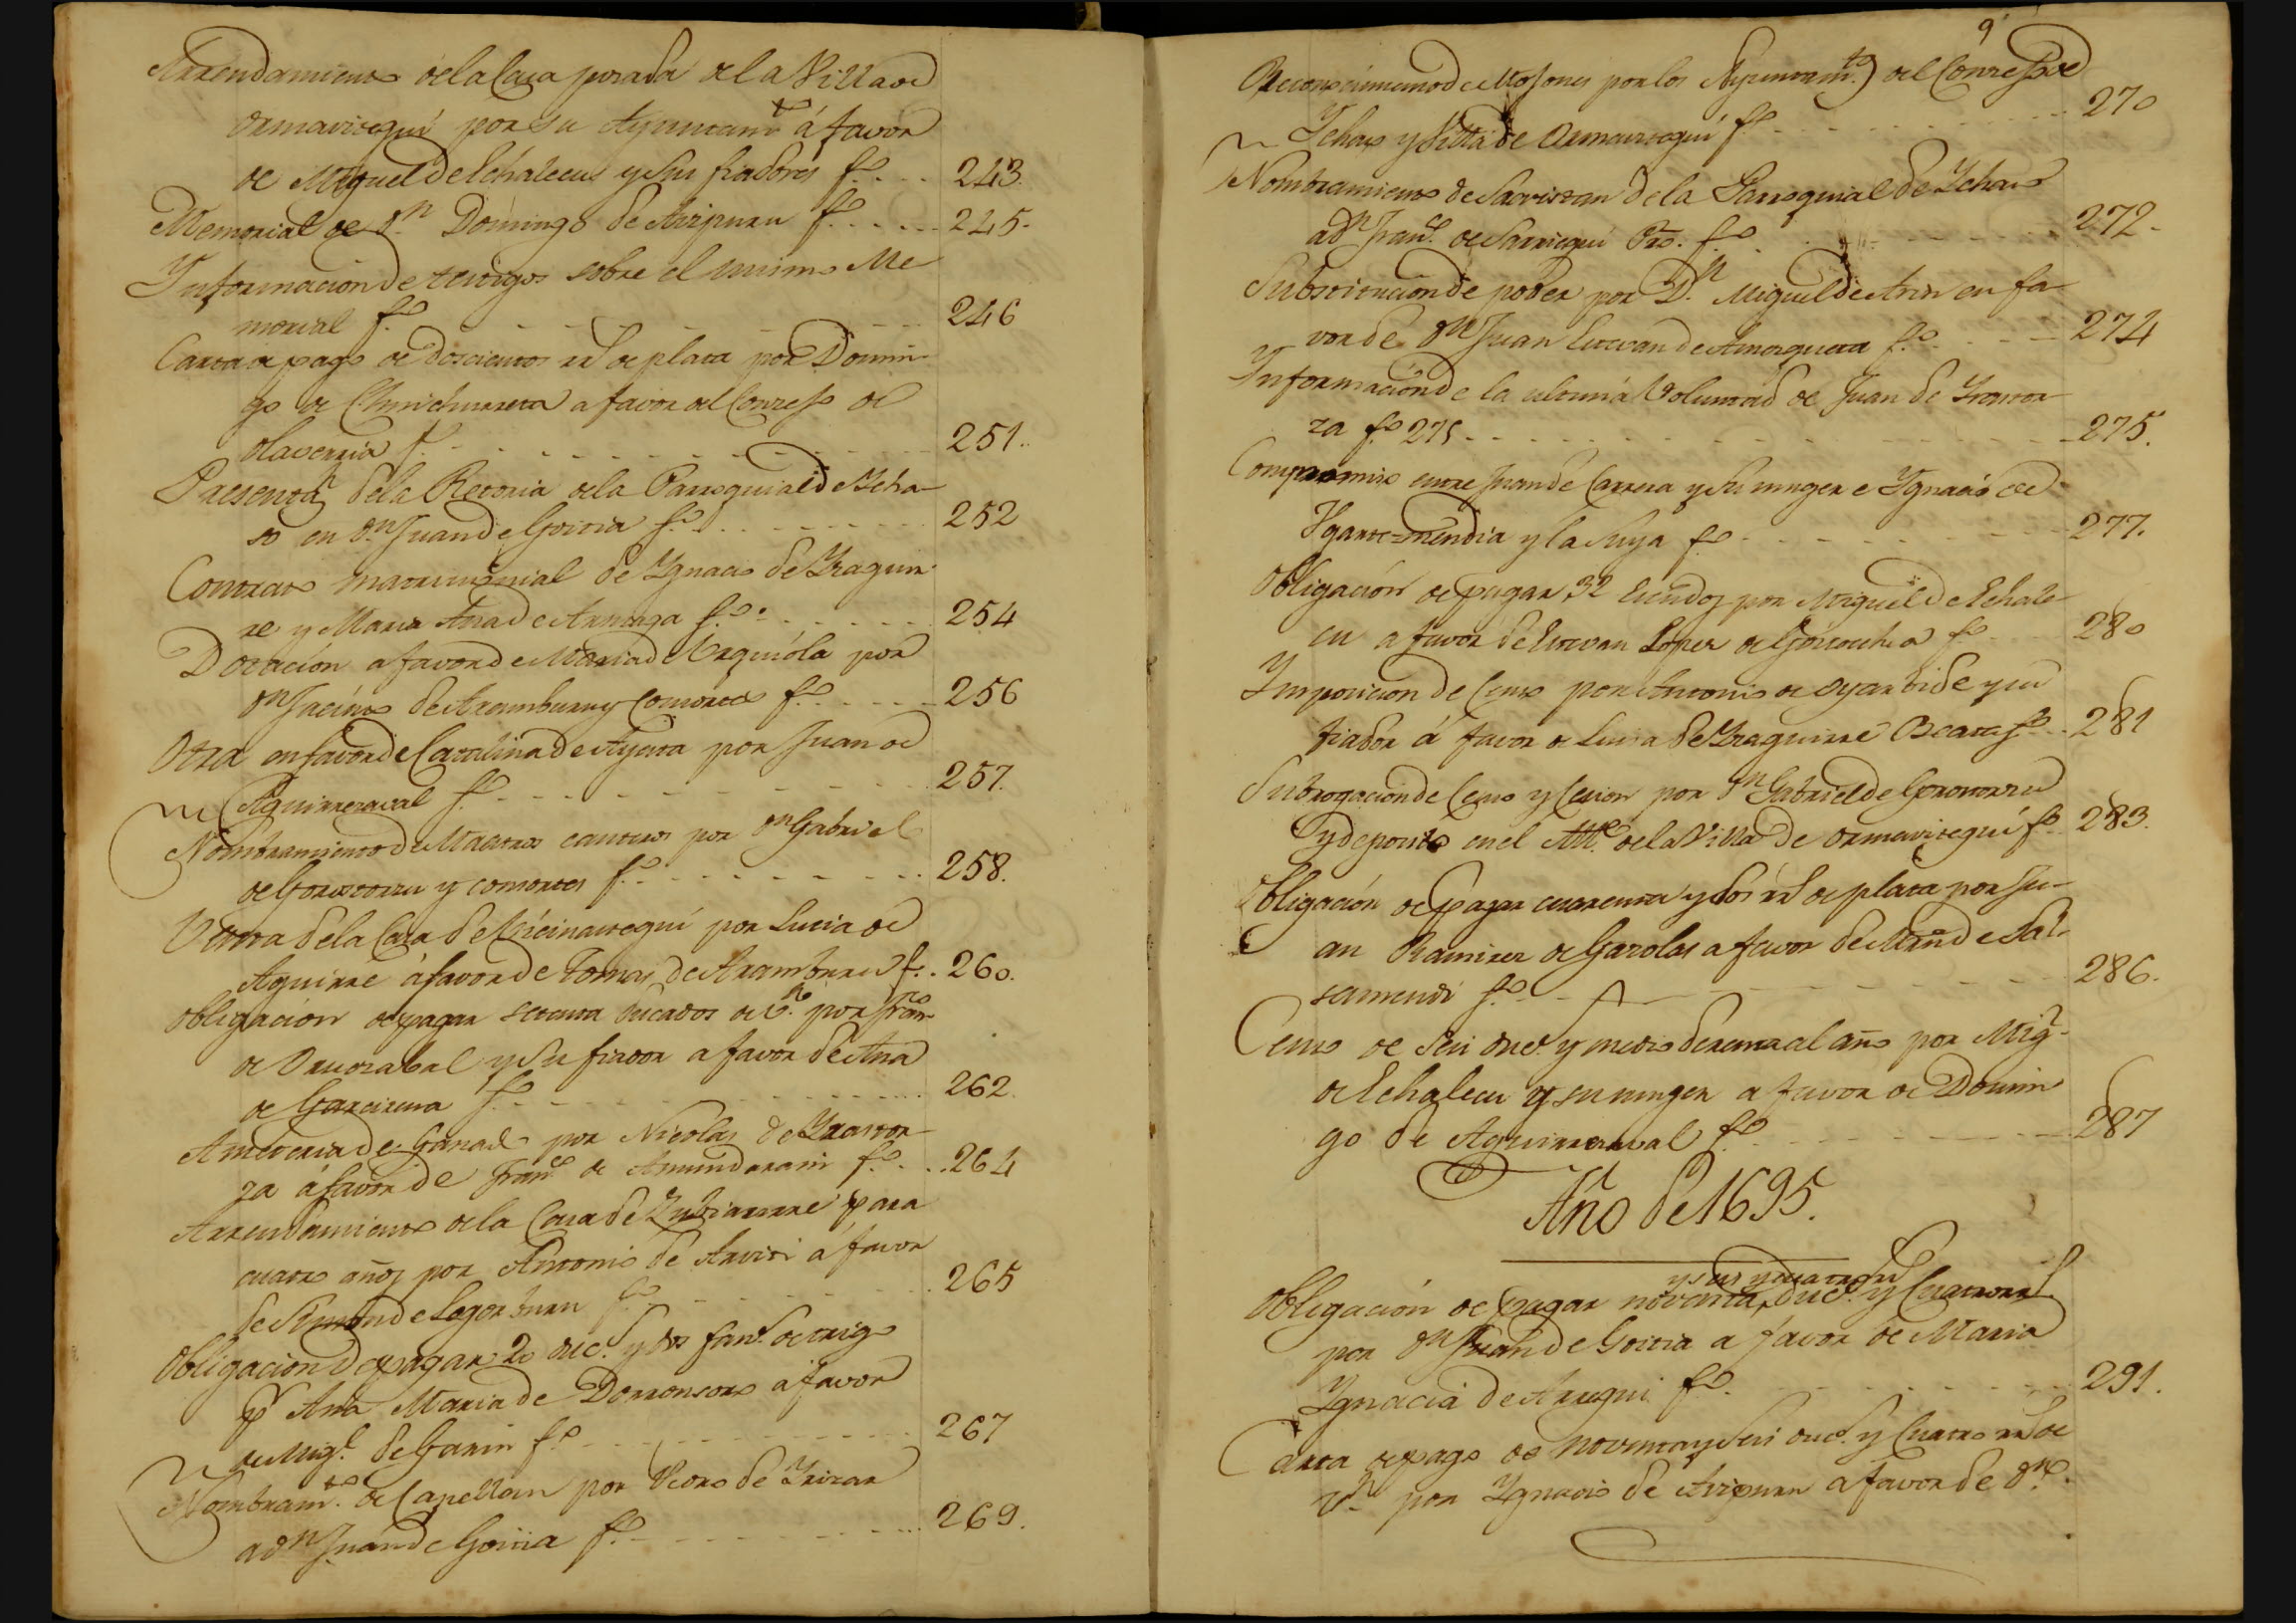 Arrendamiento de la Casa posada de la Villa de
Ormaiztegui por su Ayuntam.to á favor
de Miguel de Echalecu y sus fiadores f.o 243.
Memorial de d.n Domingo de Arizpuru f.o 245.
Ynformacion de testigos sobre el mismo Me
morial f.o 246
Carta de pago de doscientos rs de plata por Domin-
go de a favor del Conzejo de
Olaverria f.o 251.
Presentaz.n de la Retoria de la Parroquial de Ycha-
so en d.n Juan de Goitia f.o 252
Contrato matrimonial de Ygnacio de Yraguir-
re y Maria Ana de Arteaga f.o 254
Dotacion a favor de Maria de Urquiola por
d.n Jacinto de Aramburu y Consortes f.o 256
Otra en favor de Catalina de Ayerza por Juan de
Aguirrezaval f.o 257.
Nombramiento de Maestros canteros por d.n Gabriel
de Gorostorzu y consortes f.o 258.
Venta de la Casa de por Lucia de
Aguirre á favor de Tomas de Aramburu f.o 260.
Obligacion de pagar setenta ducados de v.n por Fran.co
de Oruezabal y su fiador a favor de Ana
de f.o 262.
de Ganado por Nicolas de Yrastor-
za á favor de Fran.co de Amundarain f.o 264
Arrendamiento de la Casa de Zubiaurre para
cuatro años por Antonio de Arviri á favor
de Simon de Legorburu f.o 265
Obligacion de pagar 20 duc.s y dos fan.s de trigo
p.r Ana Maria de Dorronsoro a favor
de Mig.l de Garin f.o 267
Nombram.to de Capellan por Pedro de Yrizar
a d.n Juan de Goitia f.o 269.
9
Reconocimiento de Mojones por los Ayuntam.tos del Conzejo de
Ychaso y Villa de Ormaiztegui f.o 270
Nombramiento de Sacristan de la Parroquial de Ychaso
a d.n Fran.co de Sarriegui Pro. f.o 272.
Substitucion de poder por D.n Miguel de Aris en fa-
vor de d.n Juan Estevan de Amezqueta f.o 274
Ynformacion de la ultima Voluntad de Juan de Yrastor-
za f.o 275 275.
Compromiso entre Juan de Carrera y su muger e Ygnacio de
Ygarte=mendia y la suya f.o 277.
Obligacion de pagar 32 Escudos por Miguel de Echale-
cu a favor de Estevan Lopez de Goicoechea f.o 280
Ymposicion de Censo por Antonio de Oyarbide y su
fiador á favor de Luisa de Yraguirre Beata f.o 281
Subrogacion de Censo y Cesion por d.n Gabriel de Gorostorzu
y deposito en el Alc.e de la Villa de Ormaiztegui f.o 283.
Obligacion de pagar cuarenta y dos rs de plata por Ju-
an Ramirez de Garolas a favor de Martin de Sal-
samendi f.o 286.
Censo de seis duc.s y medio de renta al año por Mig.l
de Echalecu y su muger a favor de Domin
go de Aguirrezaval f.o 287
Año de 1695.
y seis
Obligacion de pagar noventa duc.s y Cuatro r.s
por d.n Juan de Goitia a favor de Maria
Ygnacia de Arregui f.o 291.
Carta de pago de noventa y seis duc.s y Cuatro rs de
v.n por Ygnacio de Arizpuru a favor de d.n